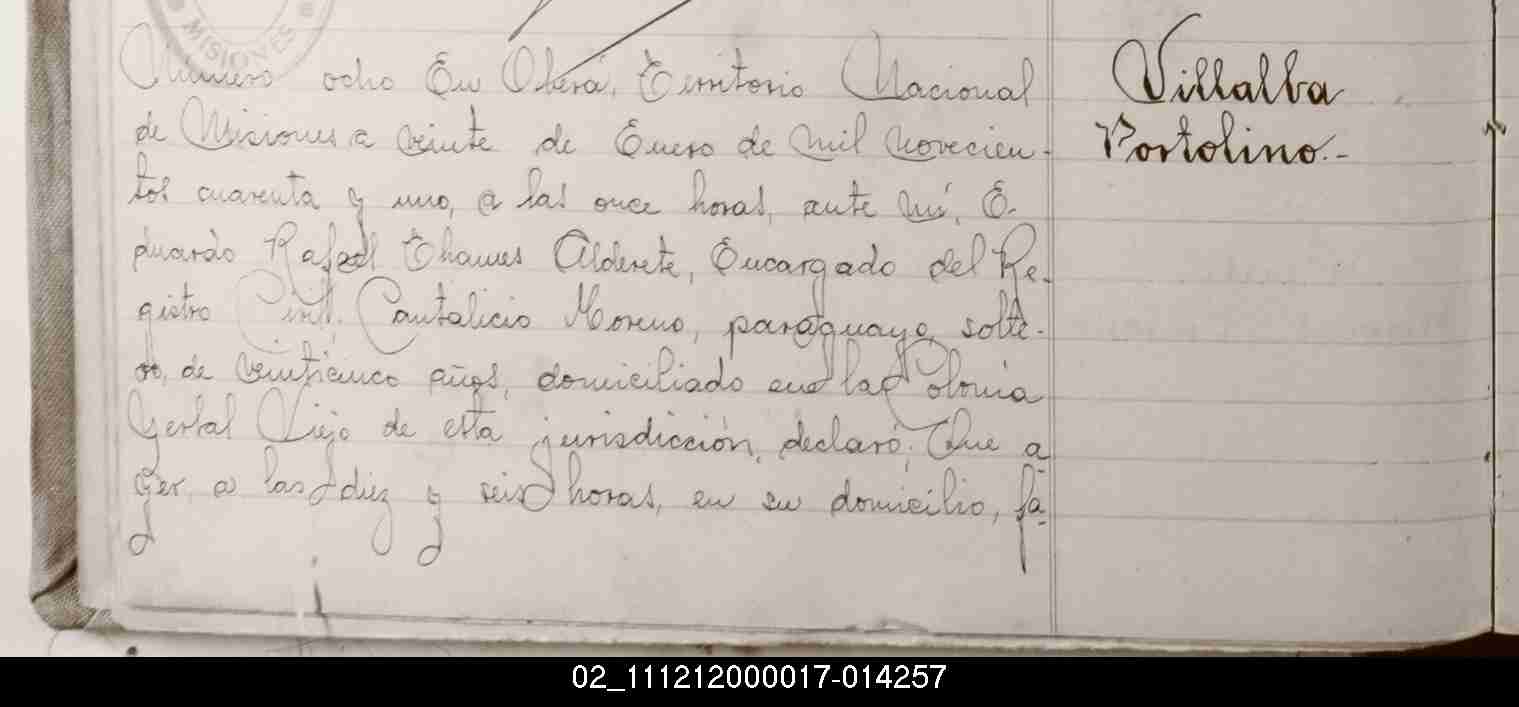 MISIONES
Número ocho En Oberá, Territorio Nacional
de Misiones a veinte de Enero de mil novecien-
tos cuarenta y uno, a las once horas, ante mí, E-
duardo Rafael Chames Alderete, Encargado del Re-
gistro Civil, Cantalicio Moreno, paraguayo, solte-
ro, de veinticinco años, domiciliado en la Colonia
Yerbal Viejo de esta jurisdicción, declaró: Que a-
yer, a las diez y seis horas, en su domicilio, fa-
Villalba
Portolino.-
02_111212000017-014257